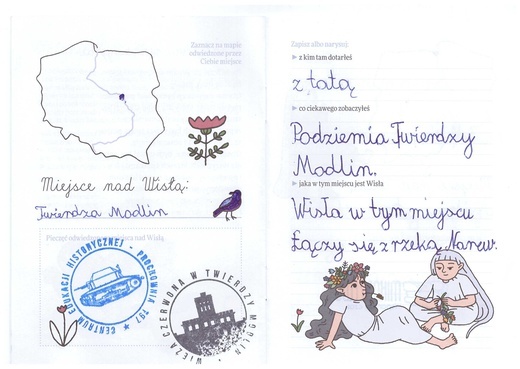 Zaznacz na mapie
odwiedzone przez
Ciebie miejsce
Miejsce nad Wisłą:
Twierdza Modlin
Pieczęć odwiedzonego miejsca nad Wisłą
CENTRUM EDUKACJI HISTORYCZNEJ • PROCHOWNIA 197
WIEŻA CZERWONA W TWIERDZY MODLIN
Zapisz albo narysuj:
z kim tam dotarłeś
z tatą
co ciekawego zobaczyłeś
Podziemia Twierdzy
Modlin.
jaka w tym miejscu jest Wisła
Wisła w tym miejscu
Łączy się z rzeką Narew.